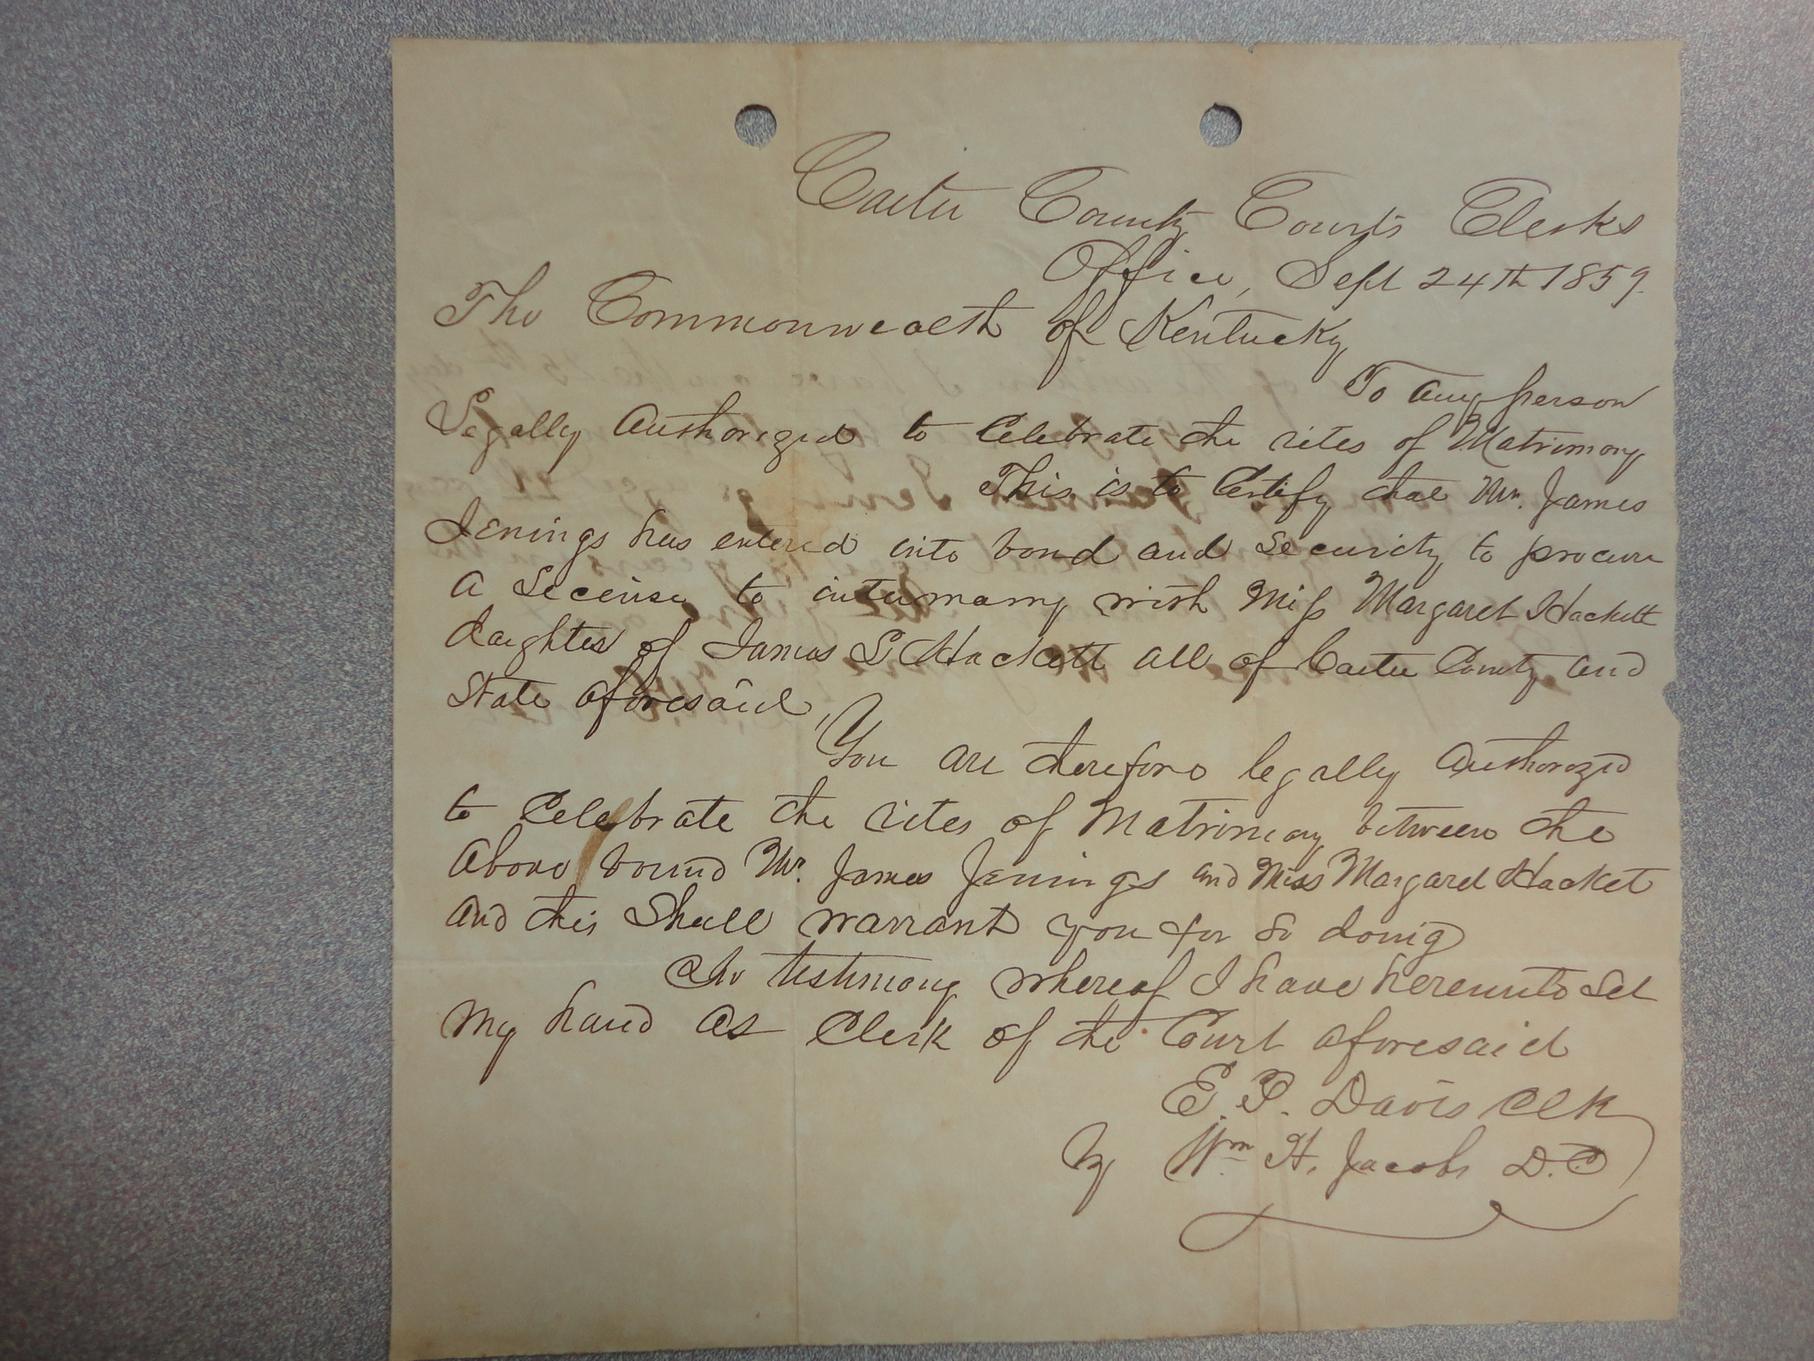 Carter County Courts Clerks
Office, Sept 24th 1859.
The Commonwealth of Kentucky
To any person
Legally Authorized to Celebrate the rites of Matrimony
This is to Certify that Mr. James
Jenings has entered into bond and Security to procure
a License to intermarry with Miss Margaret Hackett
daughter of James S Hackett all of Carter County and
State aforesaid,
You are therefore legally Authorized
to Celebrate the rites of Matrimony between the
Above bound Mr. James Jenings and Miss Margaret Hacket
and this Shall warrant you for so doing
In testimony whereof I have hereunto Set
my hand as Clerk of the Court aforesaid
E. P. Davis Clk
by Wm H. Jacobs D.C